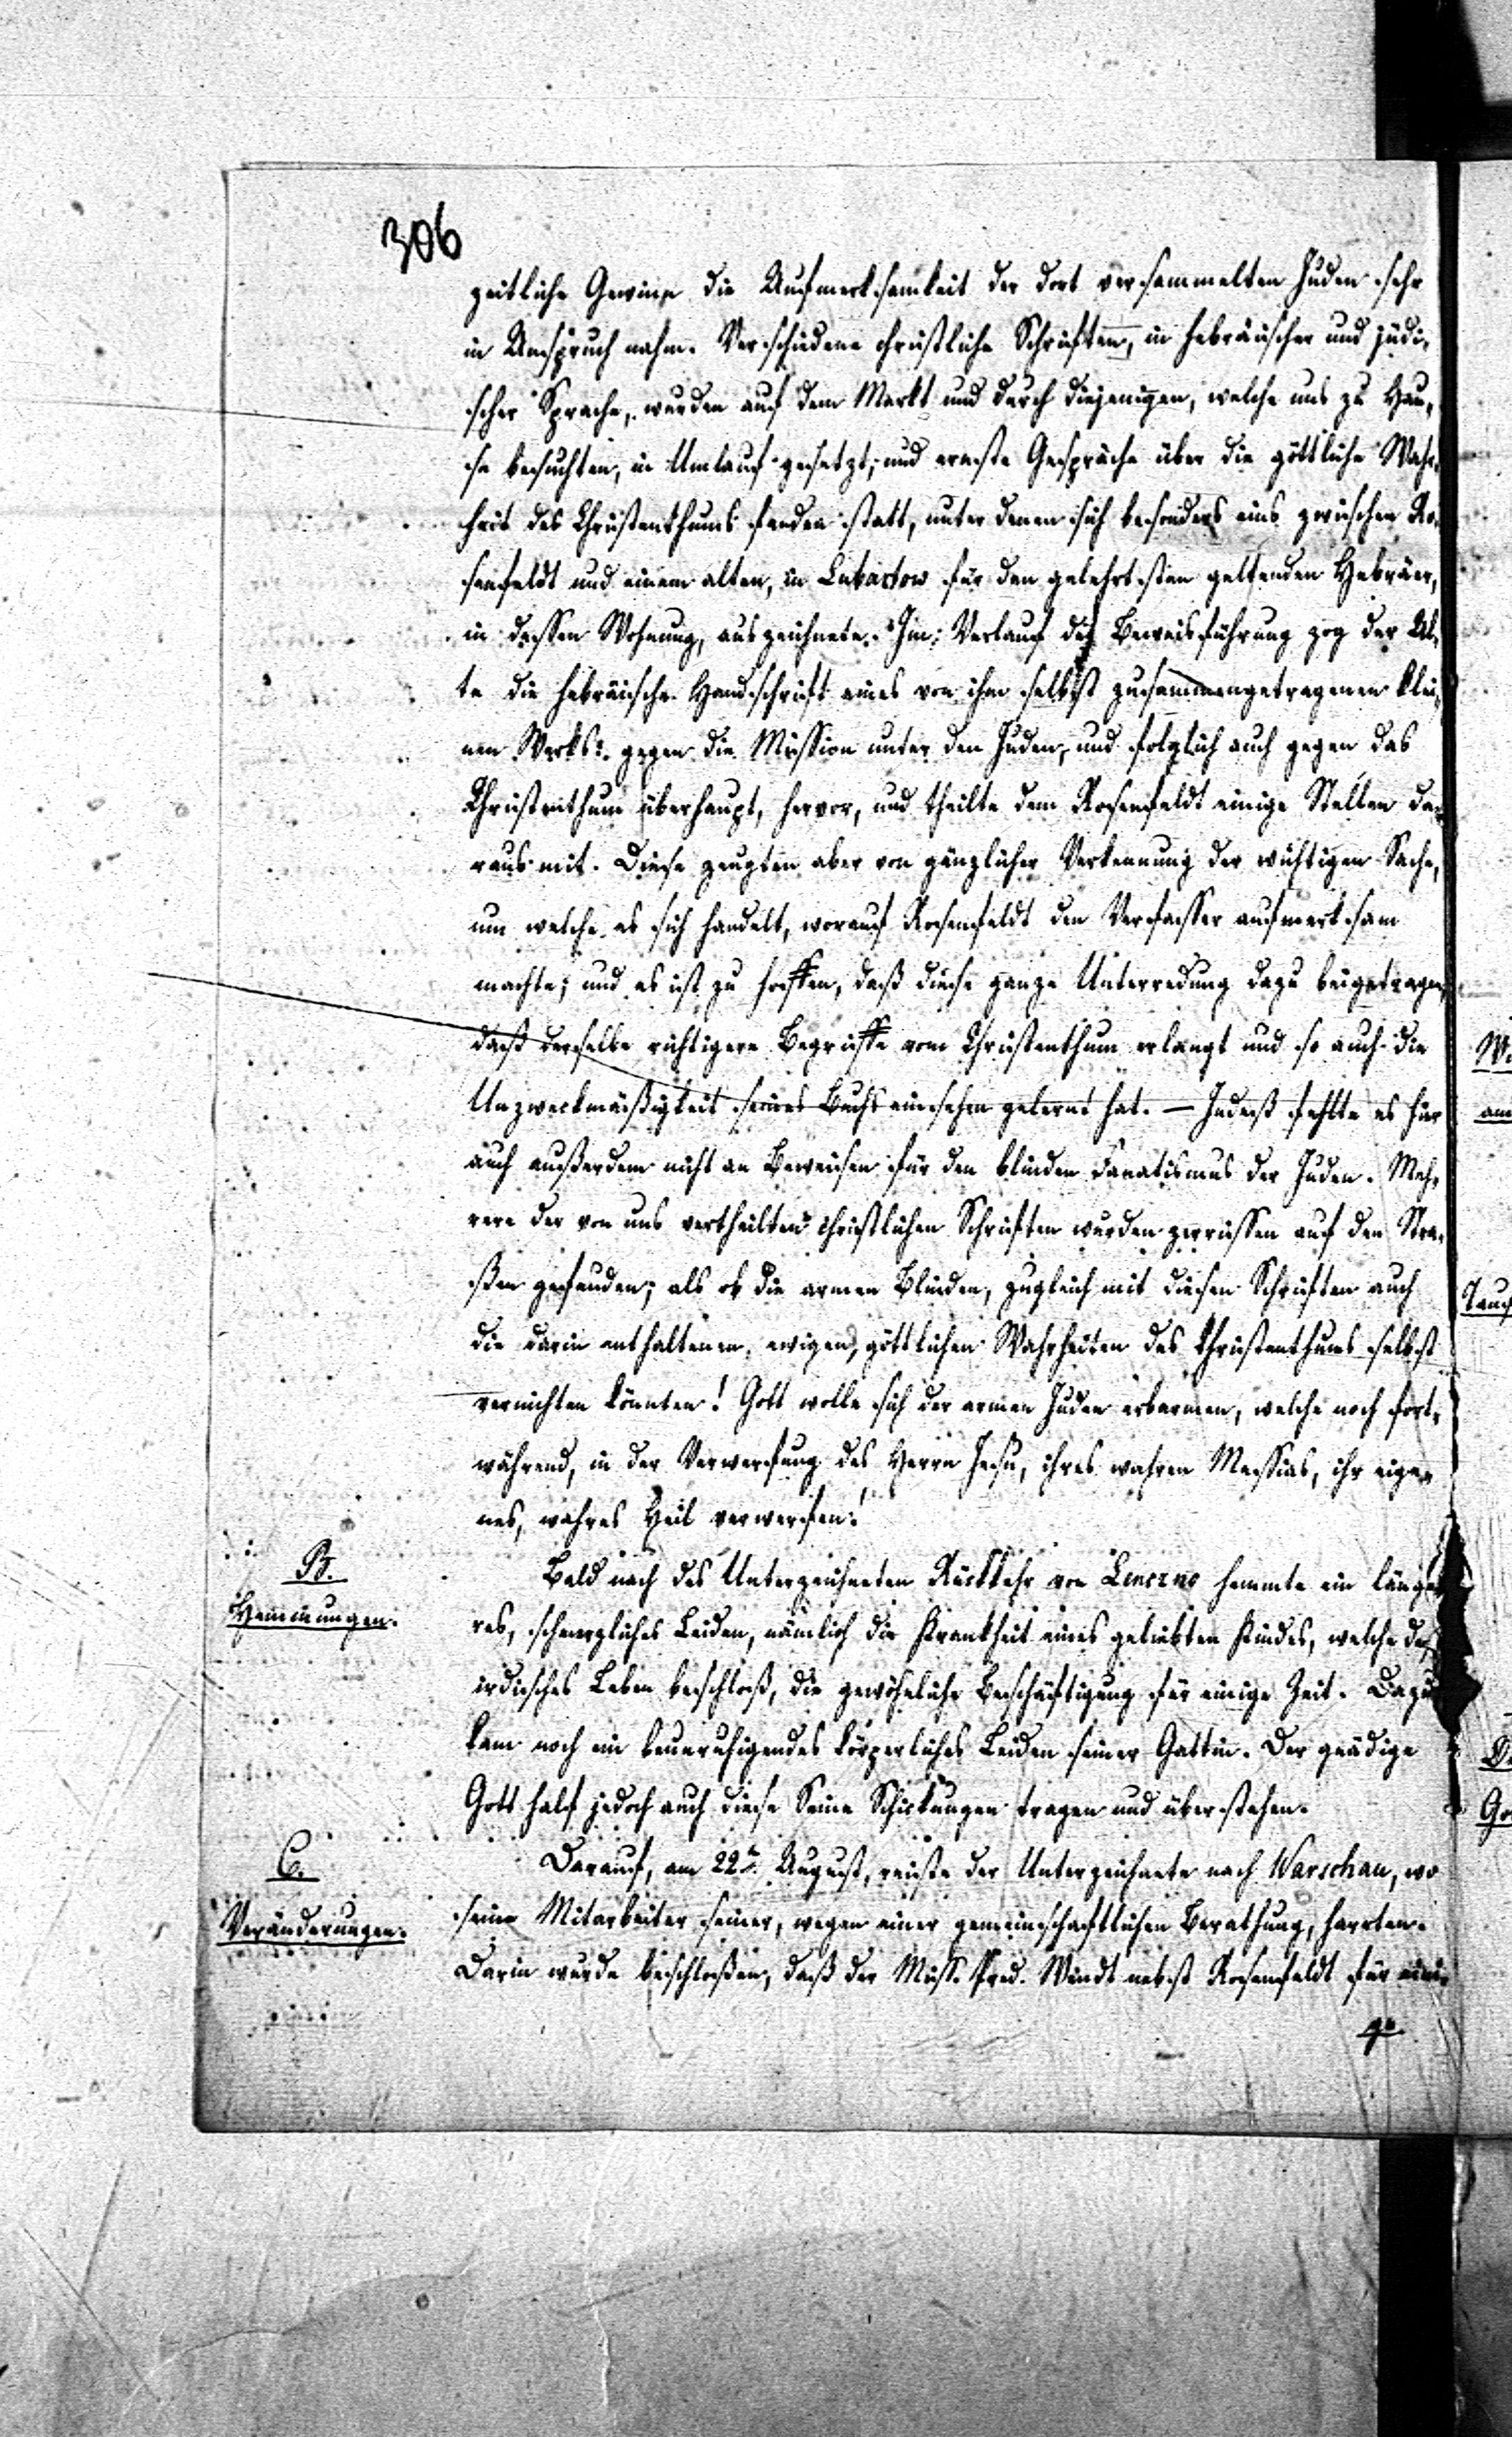 306
zeitliche Gewinn die Aufmerksamkeit der dort versammelten Juden sehr
in Anspruch nahm. Verschiedene christliche Schriften, in hebräischer und jüdi-
scher Sprache, wurden auf dem Markt und durch diejenigen, welche uns zu Hau-
se besuchten, in Umlauf gesetzt; und ernste Gespräche über die göttliche Wahr-
heit des Christenthums fanden statt, unter denen sich besonders eins zwischen Ro-
senfeldt und einem alten, in Lubartow für den gelehrtesten geltenden Hebräer,
in dessen Wohnung, auszeichnete. Im Verlauf der Beweisführung zog der Al-
te die hebräische Handschrift eines von ihm selbst zusammengetragenen klei-
nen Werks gegen die Mission unter den Juden, und folglich auch gegen das
Christenthum überhaupt, hervor, und theilte dem Rosenfeldt einige Stellen da-
raus mit. Diese zeugten aber von gänzlicher Verkennung der wichtigen Sache,
um welche es sich handelt, worauf Rosenfeldt den Verfasser aufmerksam
machte; und es ist zu hoffen, daß diese ganze Unterredung dazu beigetragen,
daß derselbe richtigere Begriffe vom Christenthum erlangt und so auch die
Unzweckmäßigkeit seines Buchs einsehen gelernt hat. — Indeß fehlte es hier
auch außerdem nicht an Beweisen für den blinden Fanatismus der Juden. Meh-
rere der von uns vertheilten christlichen Schriften wurden zerrissen auf den Stra-
ßen gefunden; als ob die armen Blinden, zugleich mit diesen Schriften auch
die darin enthaltenen, ewigen, göttlichen Wahrheiten des Christenthums selbst
vernichten könnten! Gott wolle sich der armen Juden erbarmen, welche noch fort-
während, in der Verwerfung des Herrn Jesu, ihres wahren Messias, ihr eige-
nes, wahres Heil verwerfen!
B.
Hemmungen.
Bald nach des Unterzeichneten Rückkehr von Lenczno hemmte ein länge-
res, schmerzliches Leiden, nämlich die Krankheit eines geliebten Kindes, welche des
irdisches Leben beschloß, die gewöhnliche Beschäftigung für einige Zeit. Dazu
kam noch ein beunruhigendes körperliches Leiden seiner Gattin. Der gnädige
Gott half jedoch auch diese Seine Schickungen tragen und überstehen.
C.
Veränderungen.
Darauf, am 22n August, reiste der Unterzeichnete nach Warschau, wo
seine Mitarbeiter seiner, wegen einer gemeinschaftlichen Berathung, harrten.
Darin wurde beschloßen, daß der Miss. Pred. Wendt nebst Rosenfeldt für eini-
ge